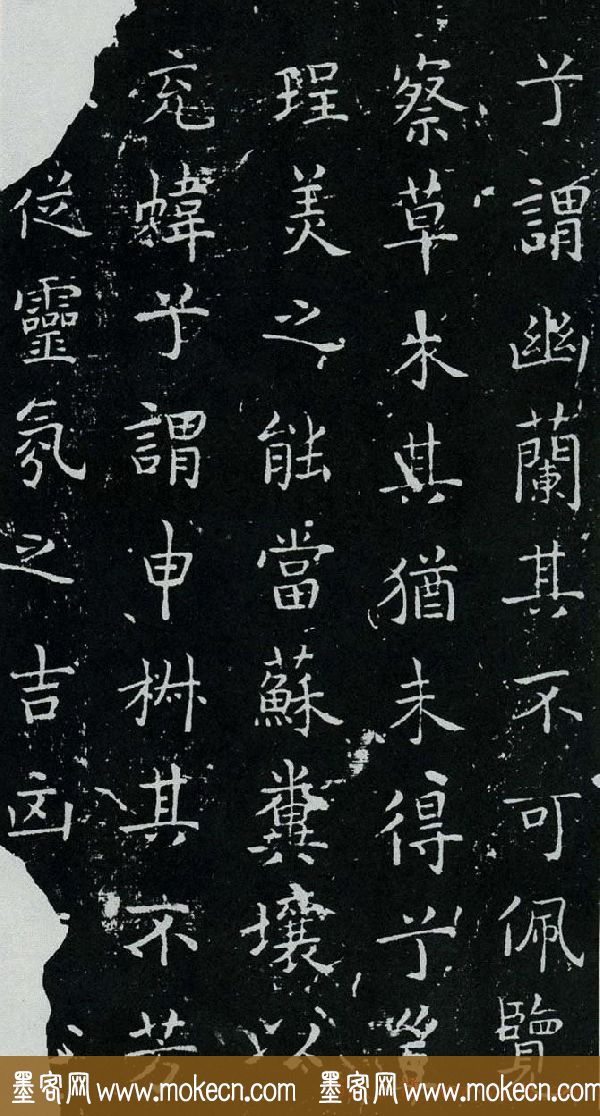 兮謂幽蘭其不可佩覽
察草木其猶未得兮豈
珵美之能當蘇糞壤以
充幃兮謂申椒其不芳
從靈氛之吉凶
墨客网 www.mokecn.com 墨客网 www.mokecn.com